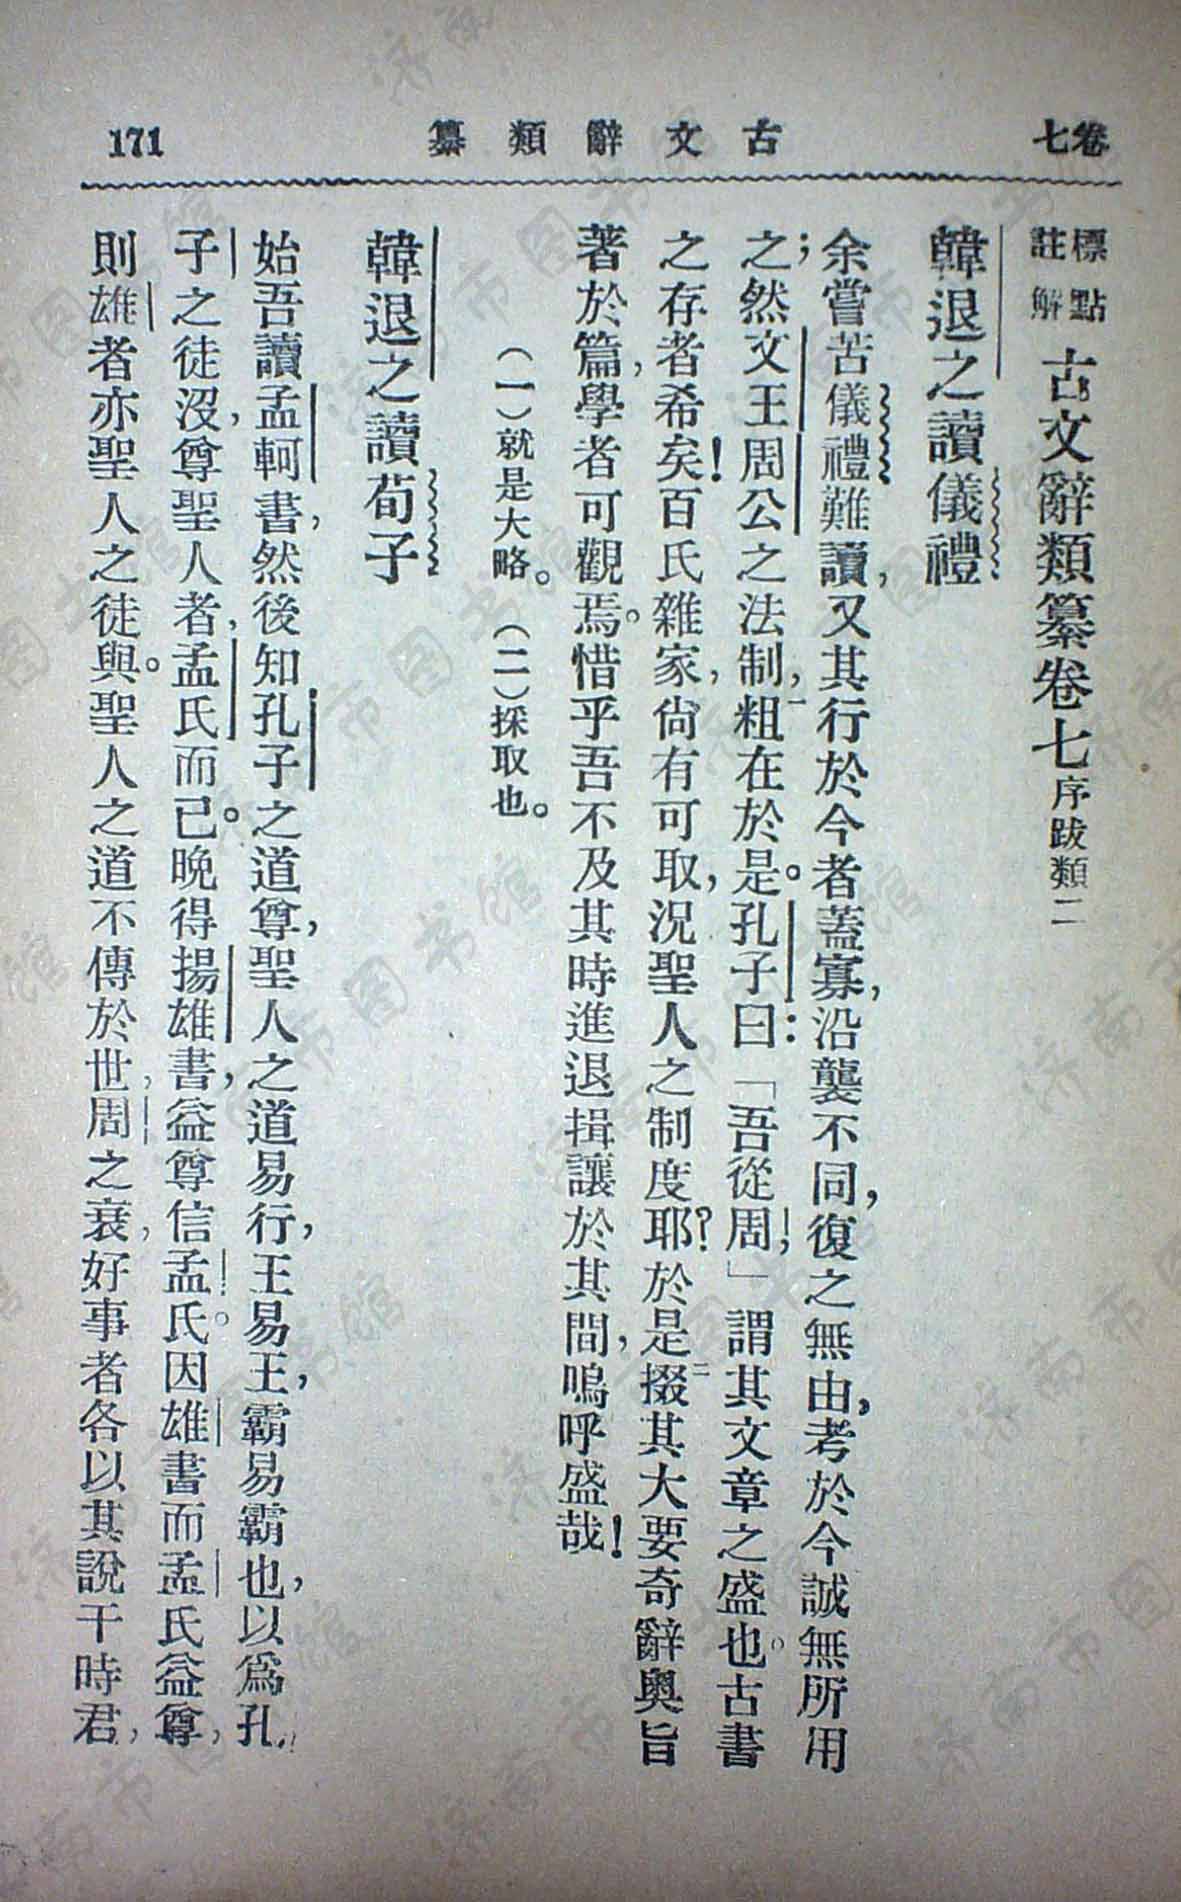 卷七
古文辭類纂
171
標點註解 古文辭類纂卷七 序跋類二
韓退之讀儀禮
余嘗苦儀禮難讀，又其行於今者蓋寡，沿襲不同，復之無由，考於今誠無所用
之；然文王周公之法制，粗在於是。孔子曰：「吾從周！」謂其文章之盛也。古書
之存者希矣！百氏雜家，尙有可取，況聖人之制度耶？於是掇其大要奇辭奧旨
著於篇，學者可觀焉。惜乎吾不及其時進退揖讓於其間，嗚呼盛哉！
（一）就是大略。（二）採取也。
韓退之讀荀子
始吾讀孟軻書，然後知孔子之道尊，聖人之道易行，王易王，霸易霸也，以爲孔
子之徒沒，尊聖人者，孟氏而已。晚得揚雄書，益尊信孟氏。因雄書而孟氏益尊，
則雄者亦聖人之徒與。聖人之道不傳於世，周之衰，好事者各以其說干時君，